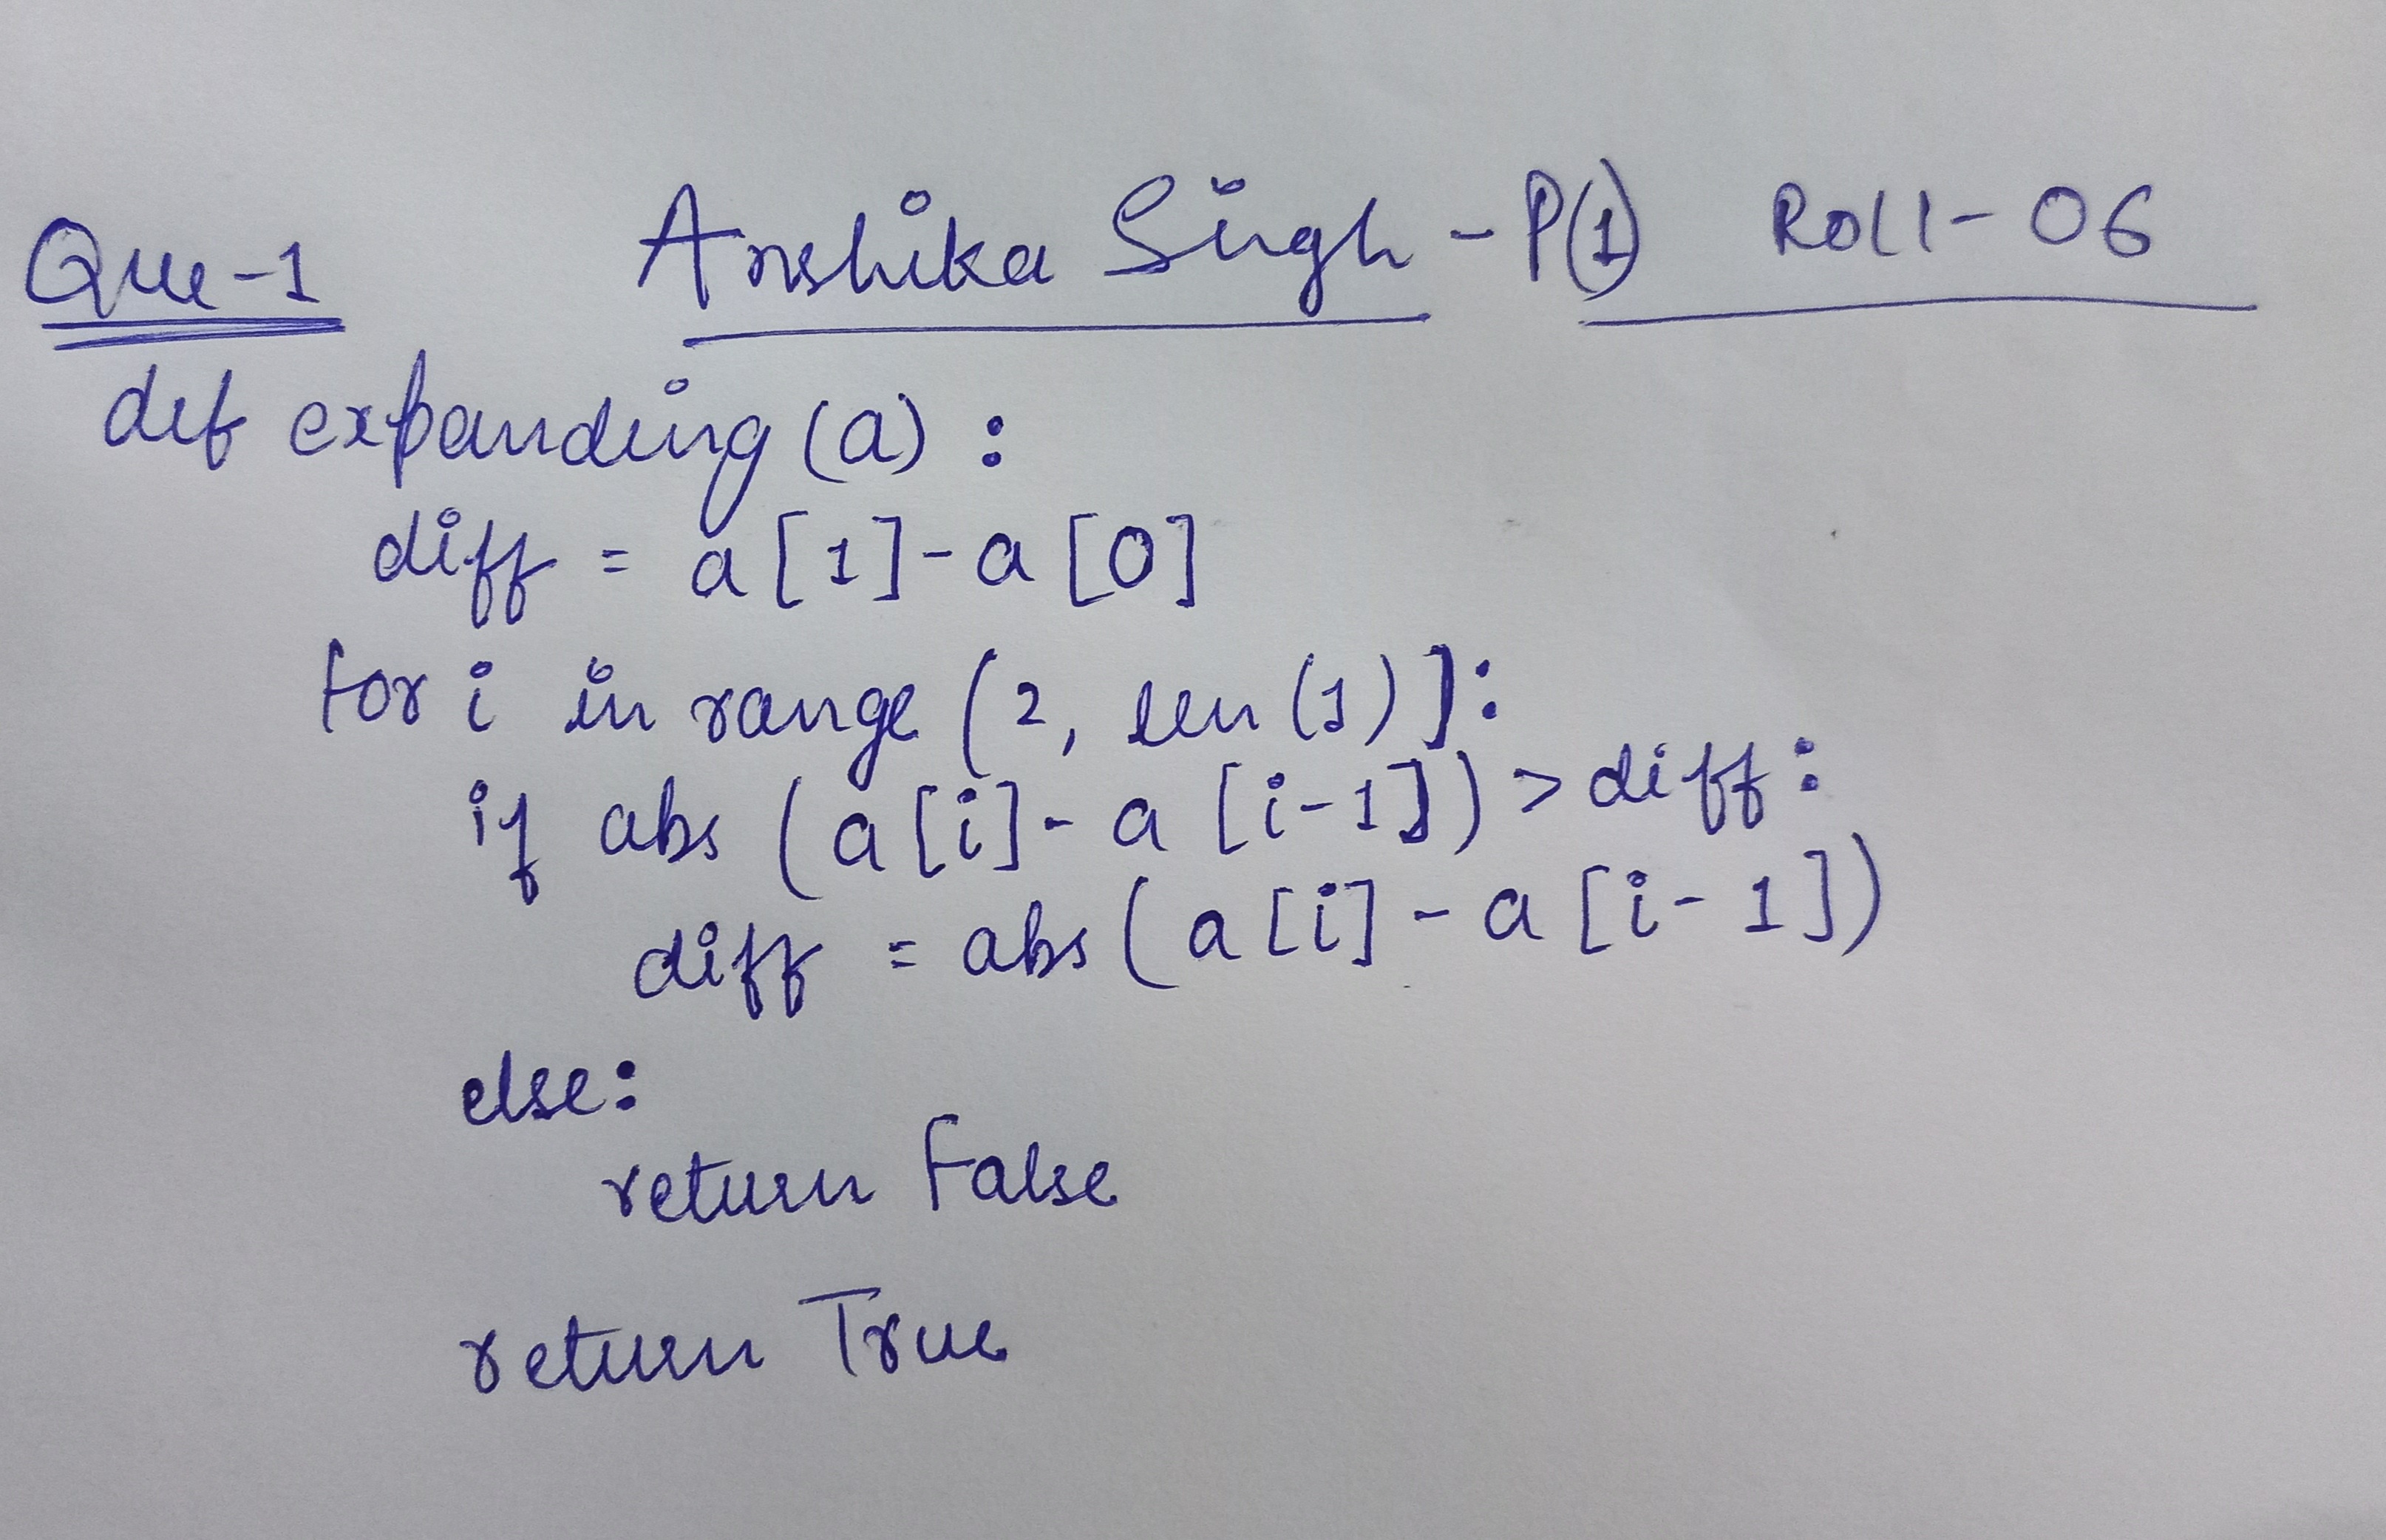 Que-1 Anshika Singh - P(1) Roll-06
def expanding (a) :
diff = a[1]-a[0]
for i in range (2, len (1)]:
if abs (a[i]- a [i-1]) > diff :
diff = abs (a[i] - a [i-1])
else:
return False
return True